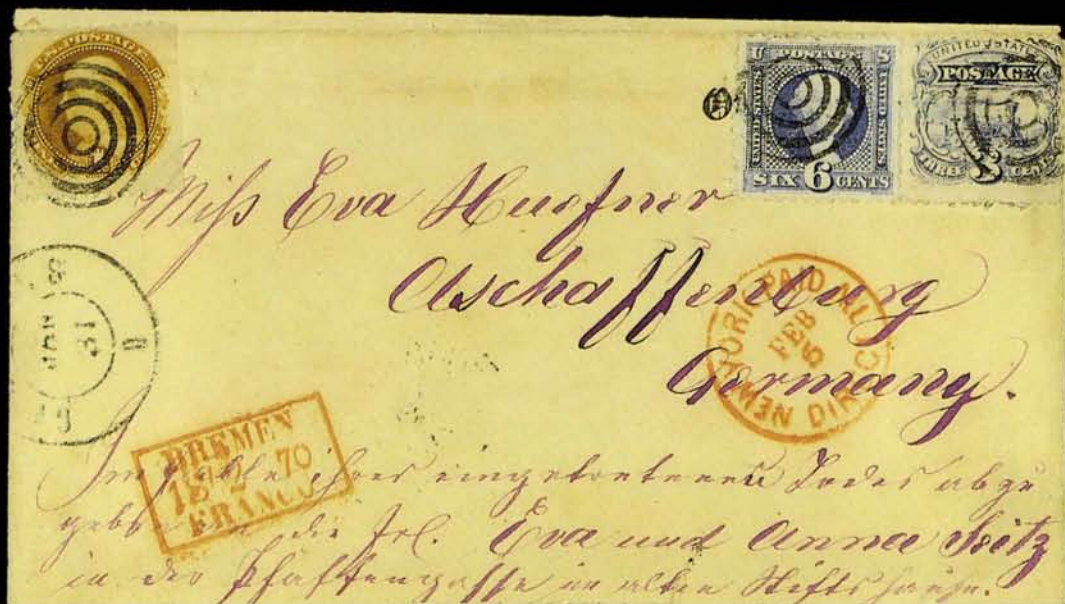 U.S. POSTAGE
U S POSTAGE
UNITED STATES
UNITED STATES
SIX 6 CENTS
UNITED STATES
POSTAGE
THREE 3 CENTS
Miss Eva Huefner
Aschaffenburg
Germany.
NEW YORK PAID ALL DIRECT
FEB
5
31
JAN
BREMEN
18 2 70
FRANCO
Im Falle ihres eingetretenen Todes abzu
geben an die Frl. Eva und Anna Seitz
in der Pfaffengasse im alten Stiftshause.